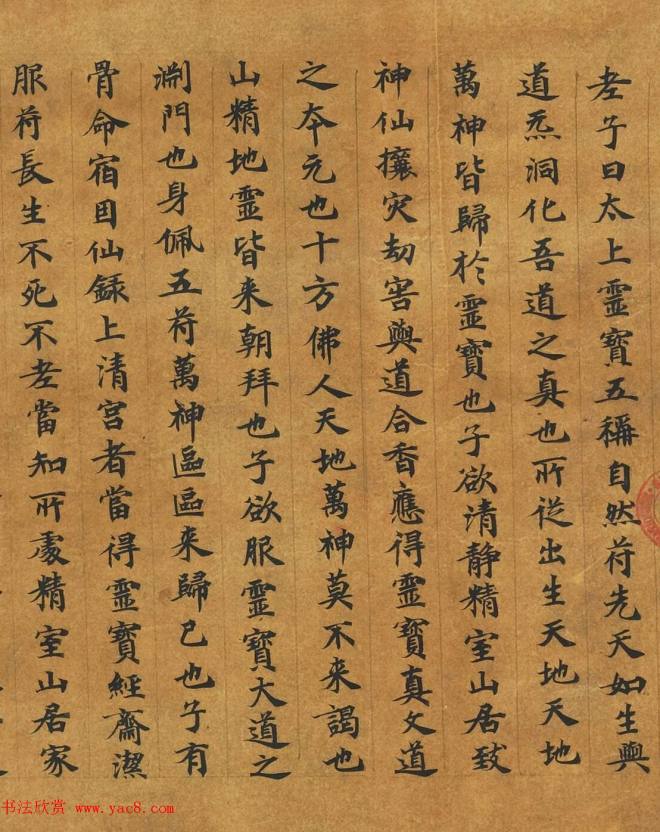 老子曰太上靈寶五稱自然符先天如生與
道炁洞化吾道之真也所從出生天地天地
萬神皆歸於靈寶也子欲清静精室山居致
神仙攘灾劫害與道合香應得靈寶真文道
之本元也十方佛人天地萬神莫不来謁也
山精地靈皆来朝拜也子欲服靈寶大道之
淵門也身佩五符萬神區區来歸己也子有
骨命宿因仙錄上清宮者當得靈寶經齋潔
服符長生不死不老當知所處精室山居家
书法欣赏 www.yac8.com